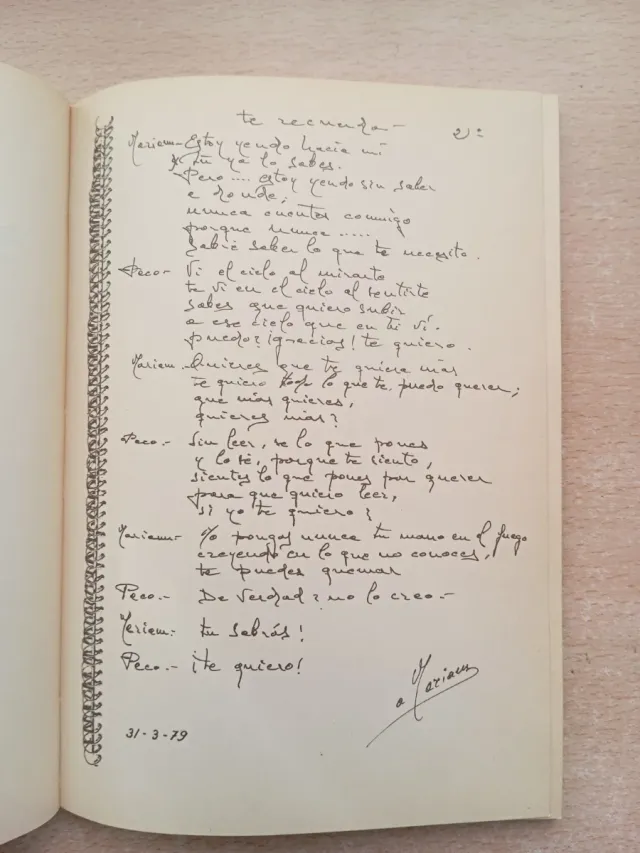 te recuerda — 2º
Mariam- Estoy yendo hacia mí
y tu ya lo sabes.
Pero .... estoy yendo sin saber
a donde,
nunca cuentes conmigo
porque nunca .....
sabré saber lo que te necesito.
Peco- Vi el cielo al mirarte
te vi en el cielo al sentirte
sabes que quiero subir
a ese cielo que en ti ví.
puedo? ¡gracias! te quiero.
Mariam- Quieres que te quiera más
te quiero lo que te puedo querer;
que más quieres,
quieres más?
Peco.- Sin leer, se lo que pones
y lo sé, porque te siento,
sientes lo que pones por querer
para que quiero leer,
si yo te quiero?
Mariam- No pongas nunca tu mano en el fuego
creyendo en lo que no conoces,
te puedes quemar
Peco.- De verdad? no lo creo.-
Mariam- tu sabrás!
Peco.- ¡te quiero!
a Mariam
31-3-79